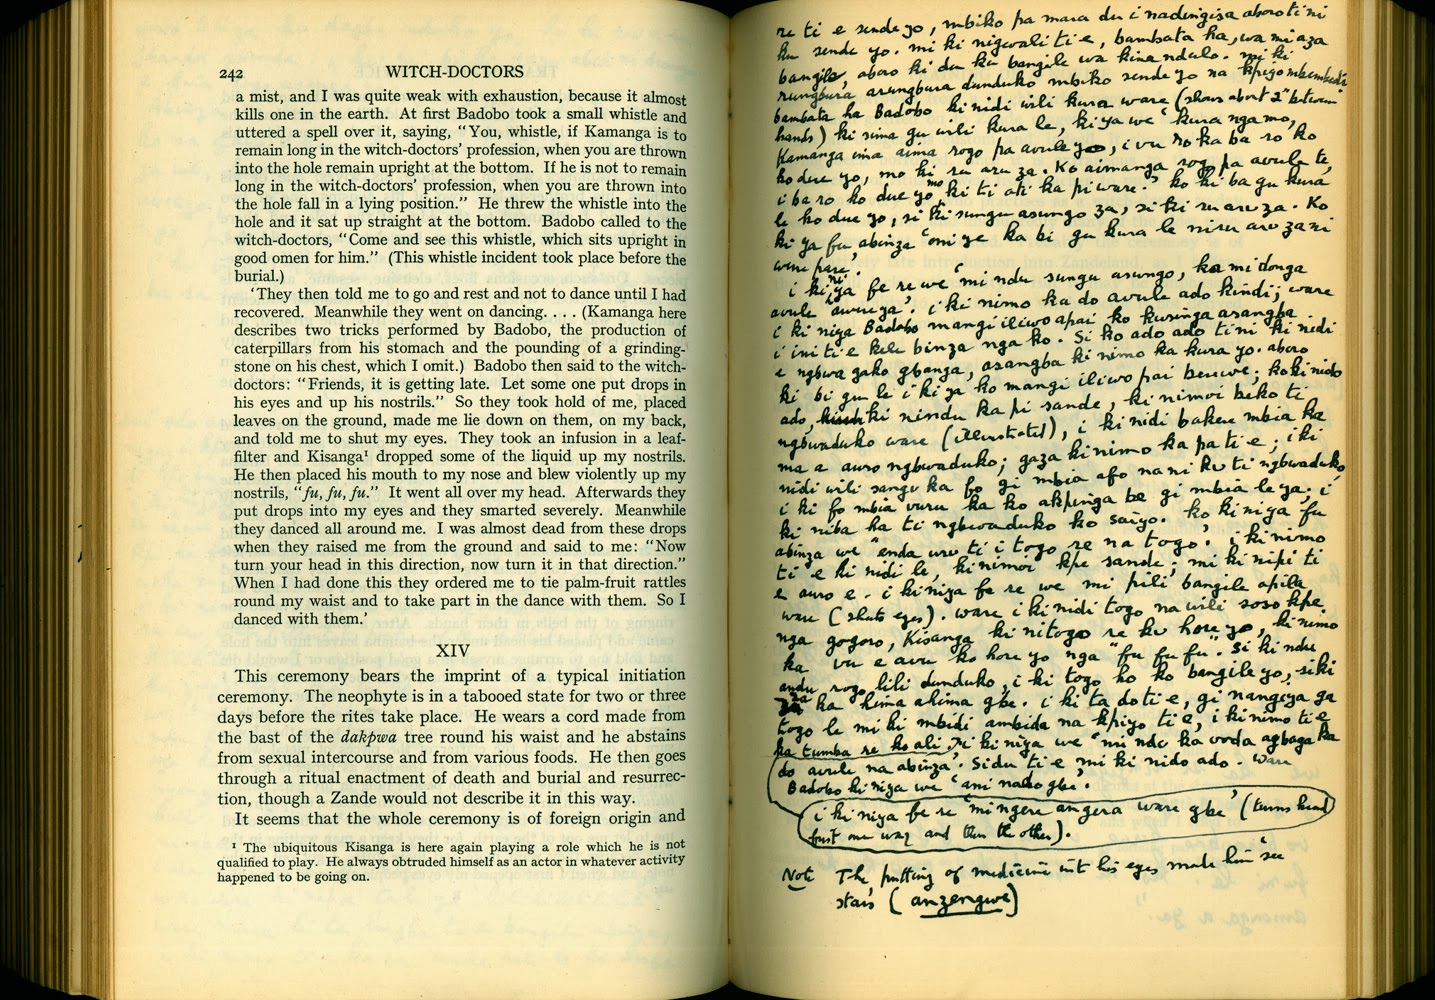 242 WITCH-DOCTORS
a mist, and I was quite weak with exhaustion, because it almost
kills one in the earth. At first Badobo took a small whistle and
uttered a spell over it, saying, “You, whistle, if Kamanga is to
remain long in the witch-doctors’ profession, when you are thrown
into the hole remain upright at the bottom. If he is not to remain
long in the witch-doctors’ profession, when you are thrown into
the hole fall in a lying position.” He threw the whistle into the
hole and it sat up straight at the bottom. Badobo called to the
witch-doctors, “Come and see this whistle, which sits upright in
good omen for him.” (This whistle incident took place before the
burial.)
‘They then told me to go and rest and not to dance until I had
recovered. Meanwhile they went on dancing. . . . (Kamanga here
describes two tricks performed by Badobo, the production of
caterpillars from his stomach and the pounding of a grinding-
stone on his chest, which I omit.) Badobo then said to the witch-
doctors: “Friends, it is getting late. Let some one put drops in
his eyes and up his nostrils.” So they took hold of me, placed
leaves on the ground, made me lie down on them, on my back,
and told me to shut my eyes. They took an infusion in a leaf-
filter and Kisanga¹ dropped some of the liquid up my nostrils.
He then placed his mouth to my nose and blew violently up my
nostrils, “fu, fu, fu.” It went all over my head. Afterwards they
put drops into my eyes and they smarted severely. Meanwhile
they danced all around me. I was almost dead from these drops
when they raised me from the ground and said to me: “Now
turn your head in this direction, now turn it in that direction.”
When I had done this they ordered me to tie palm-fruit rattles
round my waist and to take part in the dance with them. So I
danced with them.’
XIV
This ceremony bears the imprint of a typical initiation
ceremony. The neophyte is in a tabooed state for two or three
days before the rites take place. He wears a cord made from
the bast of the dakpwa tree round his waist and he abstains
from sexual intercourse and from various foods. He then goes
through a ritual enactment of death and burial and resurrec-
tion, though a Zande would not describe it in this way.
It seems that the whole ceremony is of foreign origin and
¹ The ubiquitous Kisanga is here again playing a role which he is not
qualified to play. He always obtruded himself as an actor in whatever activity
happened to be going on.
re ti e sende yo, mbiko pa mara du i nadingisa aboro ti ni
ku sende yo. mi ki nigwali ti e, bambata ha, wa mi aza
bangile, aboro ki du ku bangile wa kina ndulo. mi ki
rungbura arungbura dunduko mbiko sende yo na kpiyo
bambata ha Badobo ki nidi wili kura ware (shows about 2" between
hands) ki sima gu wili kura le, ki ya we ‘kura nga mo,
Kamanga ima aima rogo pa avule yo, i vu ro ka ba ro ko
ho due yo, mo ki ru aru za. Ka aimanga rogo pa avule te,
i ba ro ho due yo mo ki ti ati ka pi ware.’ ko ki ba gu kura
le ho due yo, si ki sungu asungo za, si ki ru aru za. Ko
ki ya fu abinza ‘oni ye ka bi gu kura le ni ru aru za ni
wene pare’.
i ki ni ya fe re we ‘mi ndu sungu asungo, ka mi donga
avule’. i ki nimo ka do avule ado kindi; ware
i ki niya Badobo mangi iliwo apai ko kusinga asangba.
i ini ti e kele binza nga ko. Si ko ado ado ti ni ki nidi
e ngbwa gako gbanga, asangba ki nimo ka kura yo. aboro
ki bi gu le i ki ya ko mangi iliwo pai berewe; ko ki nido
ado, ki nindu ka pi sande, ki nimoi beko ti
ngbwaduko ware (illustrated), i ki nidi bakere mbia ka
ma a auro ngbwaduko; gaza ki nimo ka pa ti e; i ki
nidi wili sangu ka fo gi mbia afo na ni ku ti ngbwaduko,
i ki fo mbia vuru ka ko akpinga be gi mbia le ya; i
ki niba ha ti ngbwaduko ko saiyo. ko ki niya fu
abinza we “enda uru ti i togo re na togo.’ i ki nimo
ti e ki nidi le, ki nimoi kpe sande; mi ki nipi ti
e auro e. i ki niya fe re we mi pili bangile apila
ware (shuts eyes). ware i ki nidi togo na wili soso kpe
nga gogoro, Kisanga ki nitogo re ku hore yo, ki nimo
ka vu e avu ko hore yo nga “fu fu fu”. Si ki ndu
andu rogo lili dunduko, i ki togo ho ko bangile yo, si ki
za ka kima akima gbe. i ki ta do ti e, gi nangiya ga
togo le mi ki mbidi ambida na kpiyo ti e, i ki nimo ti e
ka tumba re ko ali. i ki niya we ‘mi ndo ka voda agbaga ka
do avule na abinza’. Sidu ti e mi ki nido ado. Ware
Badobo ki niya we ‘ani nado gbe’.
i ki niya fe re ‘mi ngere angera ware gbe’ (turns head
first one way and then the other).
Note The putting of medicine into his eyes made him “see
stars (anzengwe)